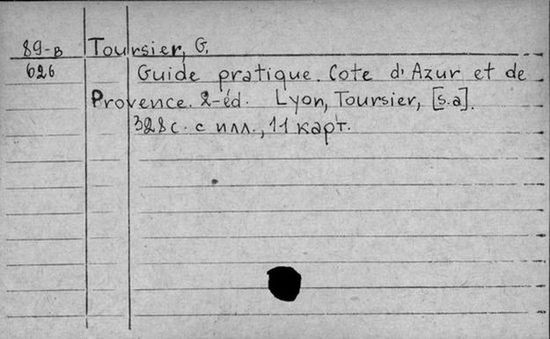 89-в Toursier, G.
626 Guide pratique. Cote d'Azur et de
Provence. 2-éd. Lyon, Toursier, [s.a].
328 с. с илл., 11 карт.